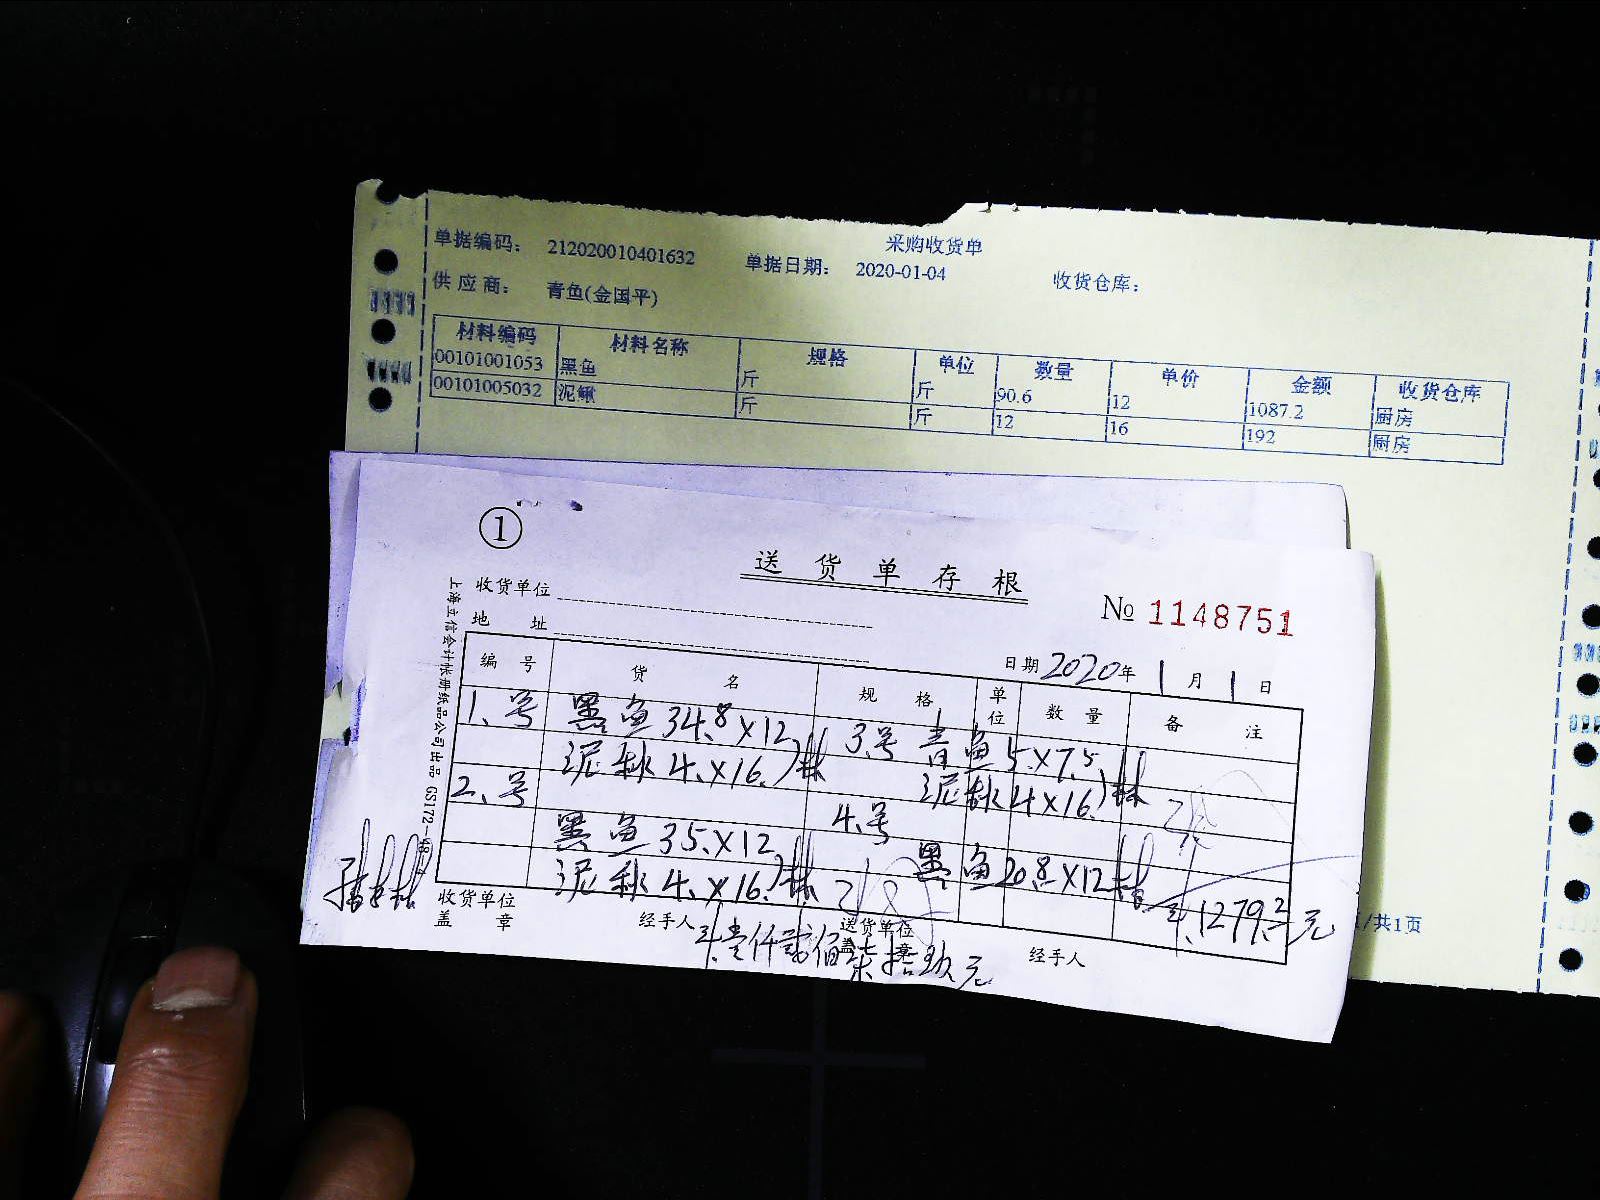 采购收货单
单据编码: 212020010401632 单据日期: 2020-01-04 收货仓库:
供应商: 青鱼(金国平)
材料编码 材料名称 规格 单位 数量 单价 金额 收货仓库
00101001053 黑鱼 斤 斤 90.6 12 1087.2 厨房
00101005032 泥鳅 斤 斤 12 16 192 厨房
①
送货单存根
收货单位
№ 1148751
地址
日期 2020年 1月 1日
编号 货名 规格 单位 数量 备注
1、号 黑鱼 34.8×12 3号 青鱼 5.×7.5
泥秋 4.×16. 泥秋 4×16.
2、号 4.号
黑鱼 35.×12 黑鱼 20.8×12
泥秋 4.×16.
1279.2元
收货单位盖章 经手人 送货单位盖章 经手人
壹仟贰佰柒拾玖元
上海立信会计帐册纸品公司出品 GS172-48-
/共1页